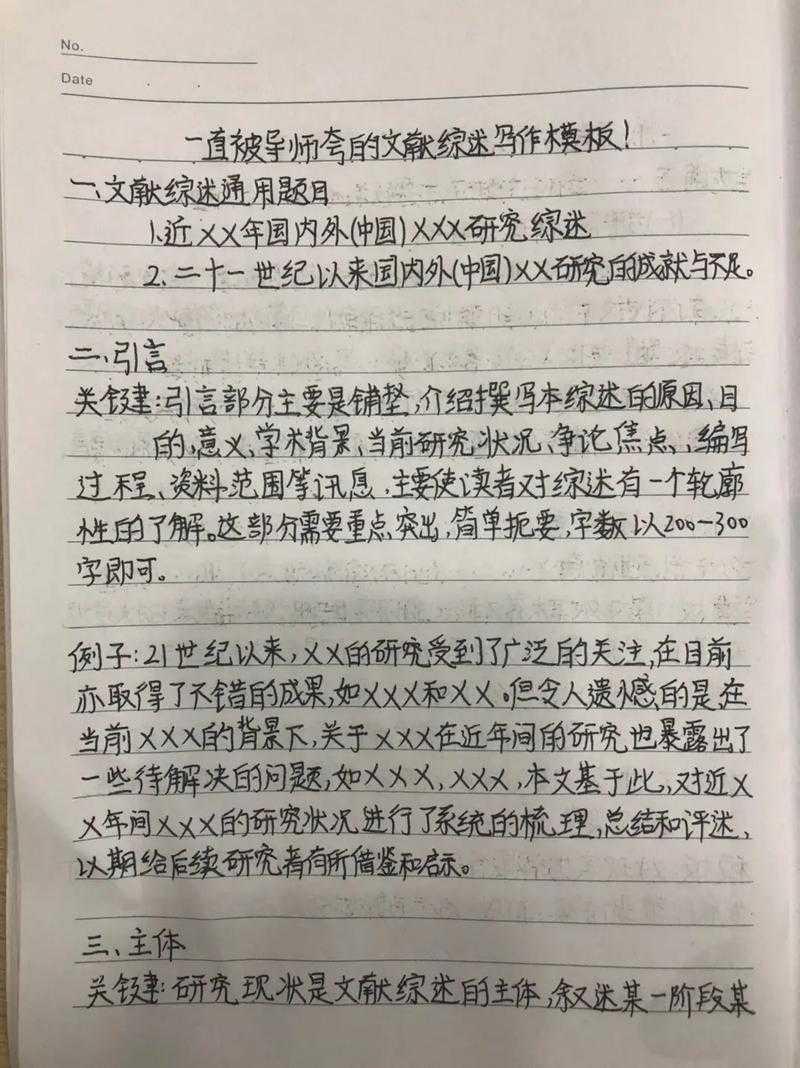 No.
Date
一直被导师夸的文献综述写作模板！
一、文献综述通用题目
1.近XX年国内外(中国)XXX研究综述
2.二十一世纪以来国内外(中国)XX研究的成就与不足。
二、引言
关键:引言部分主要是铺垫,介绍撰写本综述的原因、目
的、意义、学术背景、当前研究状况、争论焦点、编写
过程、资料范围等讯息,主要使读者对综述有一个轮廓
性的了解。这部分需要重点突出,简单扼要,字数以200-300
字即可。
例子:21世纪以来,XX的研究受到了广泛的关注,在目前
亦取得了不错的成果,如XXX和XX。但令人遗憾的是在
当前XXX的背景下,关于XXX在近年间的研究也暴露出了
一些待解决的问题,如XXX,XXX,本文基于此,对近X
X年间XXX的研究状况进行了系统的梳理,总结和评述,
以期给后续研究者有所借鉴和启示。
三、主体
关键:研究现状是文献综述的主体,叙述某一阶段某